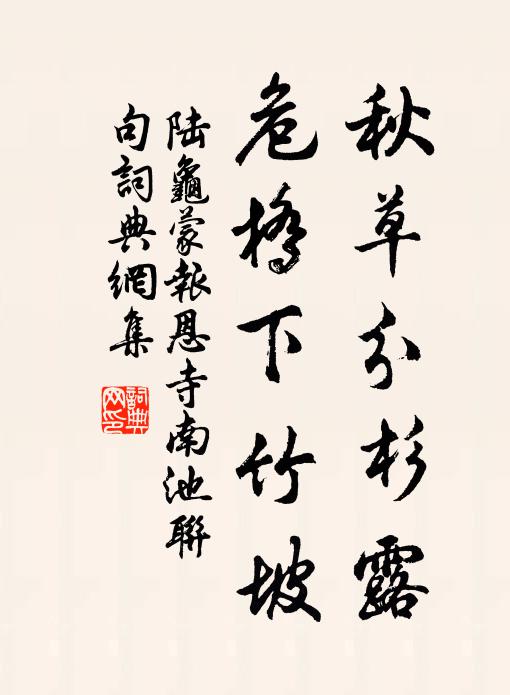 秋草分杉露
危橋下竹坡
陆龜蒙報恩寺南池聯
句詞典網集
詞典網印